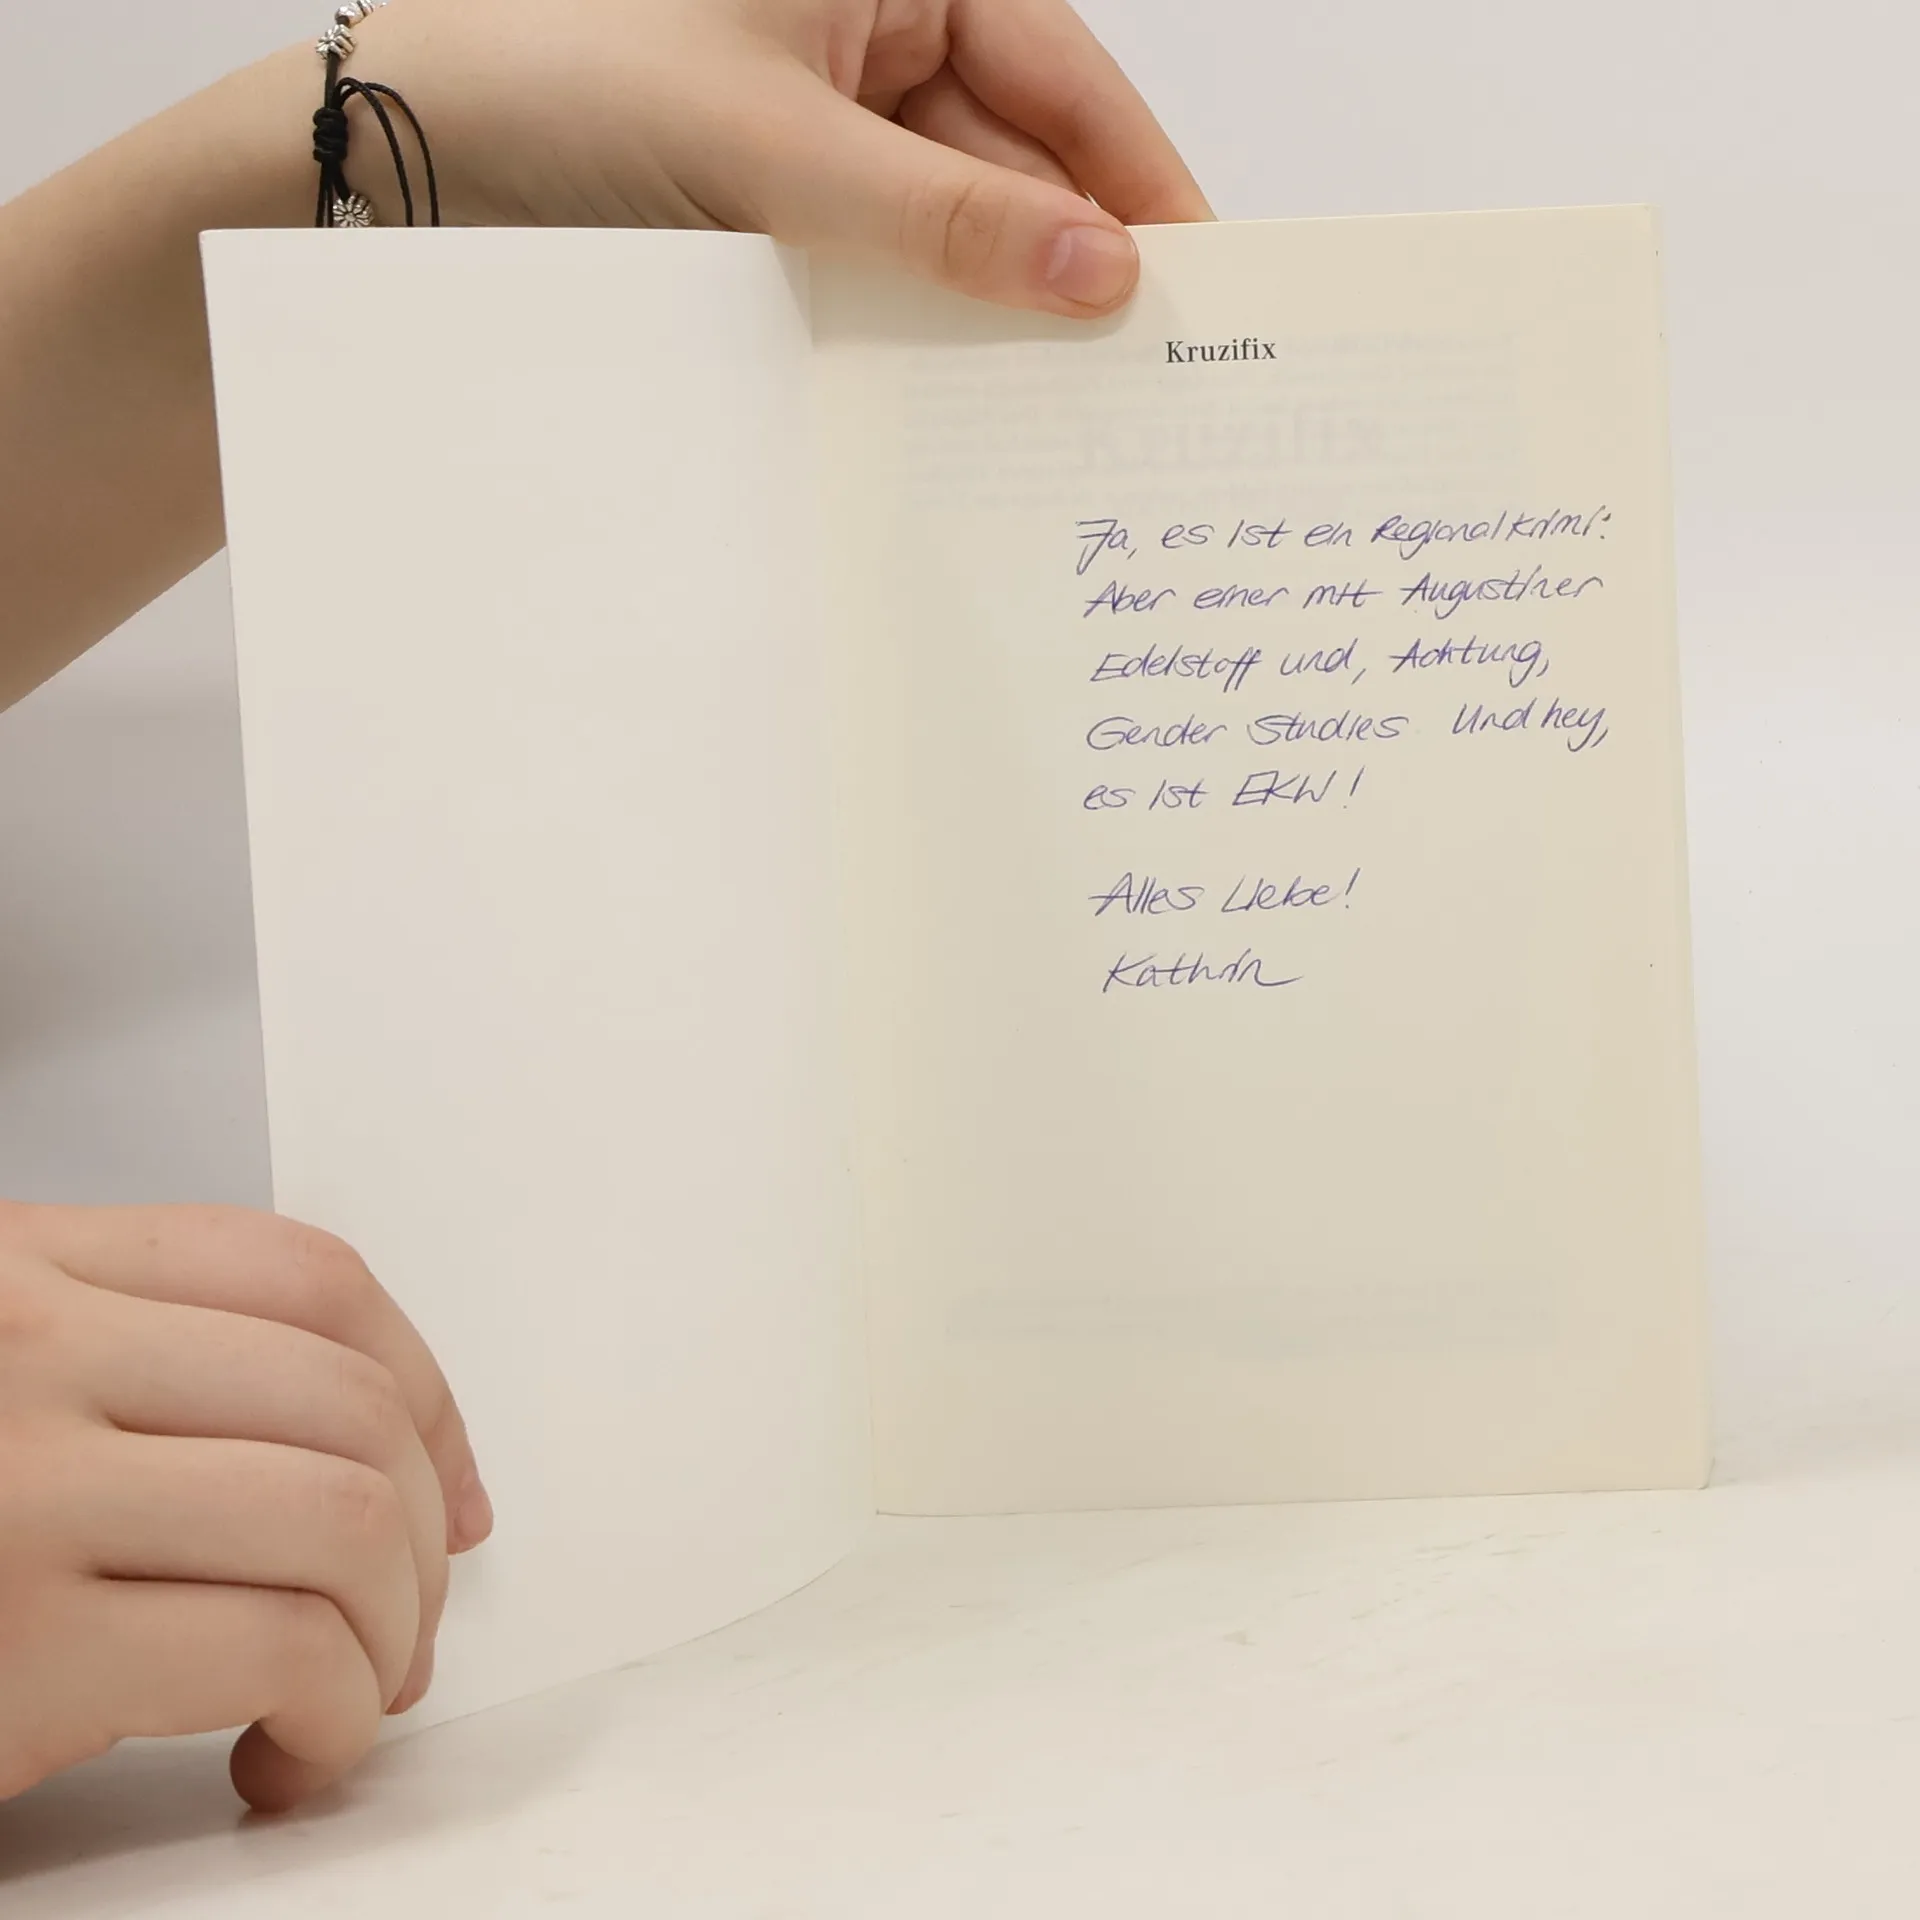 Kruzifix
Ja, es ist ein Regionalkrimi.
Aber einer mit Augustiner
Edelstoff und, Achtung,
Gender Studies Und hey,
es ist EKW!
Alles Liebe!
Kathrin